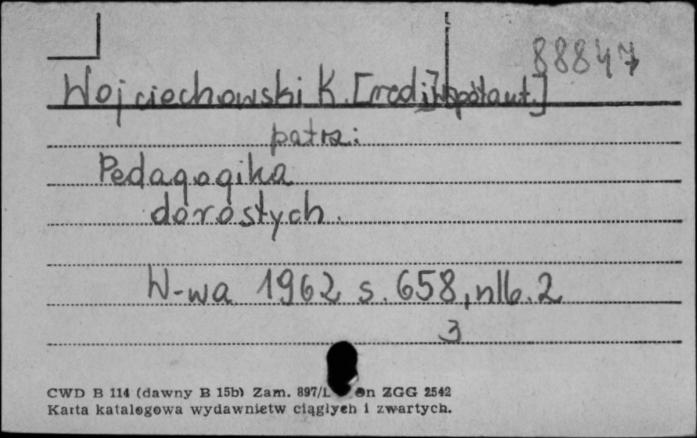 88847
Wojciechowski K. [red. i współaut.]
patrz:
Pedagogika
dorosłych.
W-wa 1962 s. 658, nlb. 2
3
CWD B 114 (dawny B 15b) Zam. 897/L ZGG 2542
Karta katalogowa wydawnictw ciągłych i zwartych.